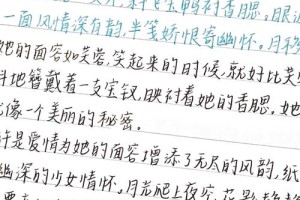 斜飞宝鸭衬香腮。眼波
一面风情深有韵,半笺娇恨寄幽怀。月移
她的面容如芙蓉,笑起来的时候,就好比芙
斜地簪戴着一支宝钗,映衬着她的香腮。她
像一个美丽的秘密。
许是爱情为她的面容增添了无尽的风韵,纸
幽深的少女情怀。月亮爬上夜空,花影